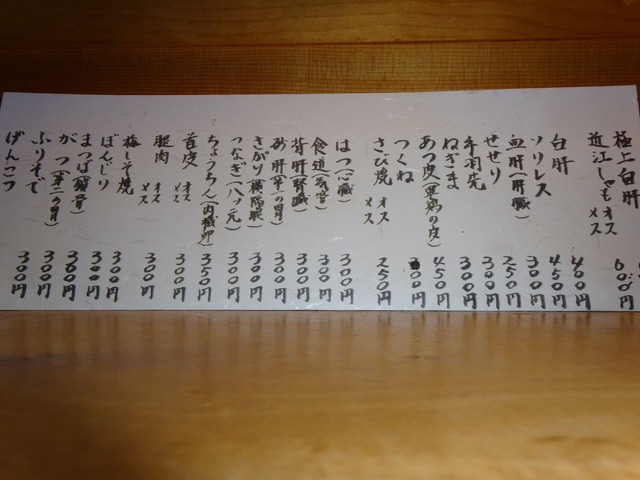 極上白肝 600円
近江しゃも オス メス
白肝 400円
ソリレス 450円
血肝(肝臓) 300円
せせり 250円
手羽先 300円
ねぎま 300円
あつ皮(里鶏の皮) 450円
つくね 300円
さび焼 オス メス 250円
はつ(心臓) 300円
食道(気管) 300円
背肝(腎臓) 300円
砂肝(第一の胃) 300円
さがり(横隔膜) 300円
つなぎ(ハツ元) 300円
ちょうちん(内臓卵) 350円
首皮 オス メス 300円
腿肉 オス メス 300円
梅しそ焼 300円
ぼんじり 300円
まつば(鎖骨) 300円
がつ(第二の胃) 300円
ふりそで 300円
げんこつ 300円